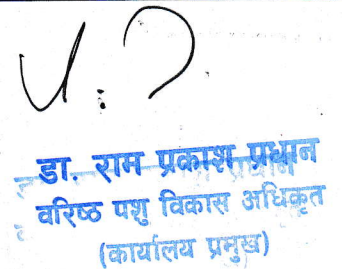 डा. राम प्रकाश प्रधान
वरिष्ठ पशु विकास अधिकृत
(कार्यालय प्रमुख)